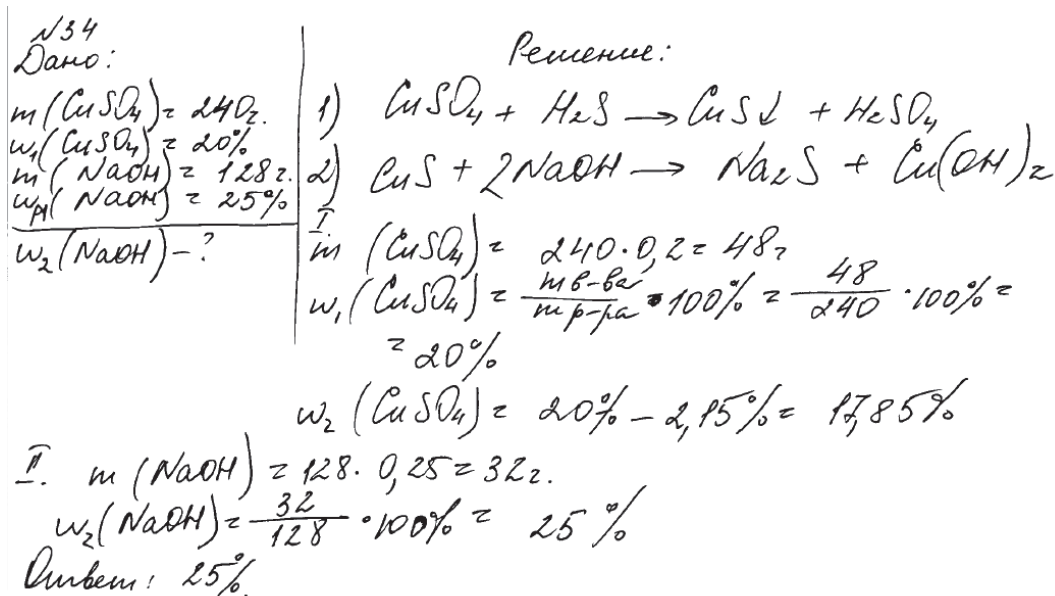 №34
Дано:
m(CuSO₄) = 240г.
w₁(CuSO₄) = 20%
m(NaOH) = 128г.
wр₁(NaOH) = 25%
w₂(NaOH) - ?
Решение:
1) CuSO₄ + H₂S → CuS↓ + H₂SO₄
2) CuS + 2NaOH → Na₂S + Cu(OH)₂
I.
m (CuSO₄) = 240·0,2 = 48г
w₁(CuSO₄) = mв-ва/mр-ра · 100% = 48/240 · 100% =
= 20%
w₂(CuSO₄) = 20% - 2,15% = 17,85%
II. m (NaOH) = 128·0,25 = 32г.
w₂(NaOH) = 32/128 · 100% = 25%
Ответ: 25%.